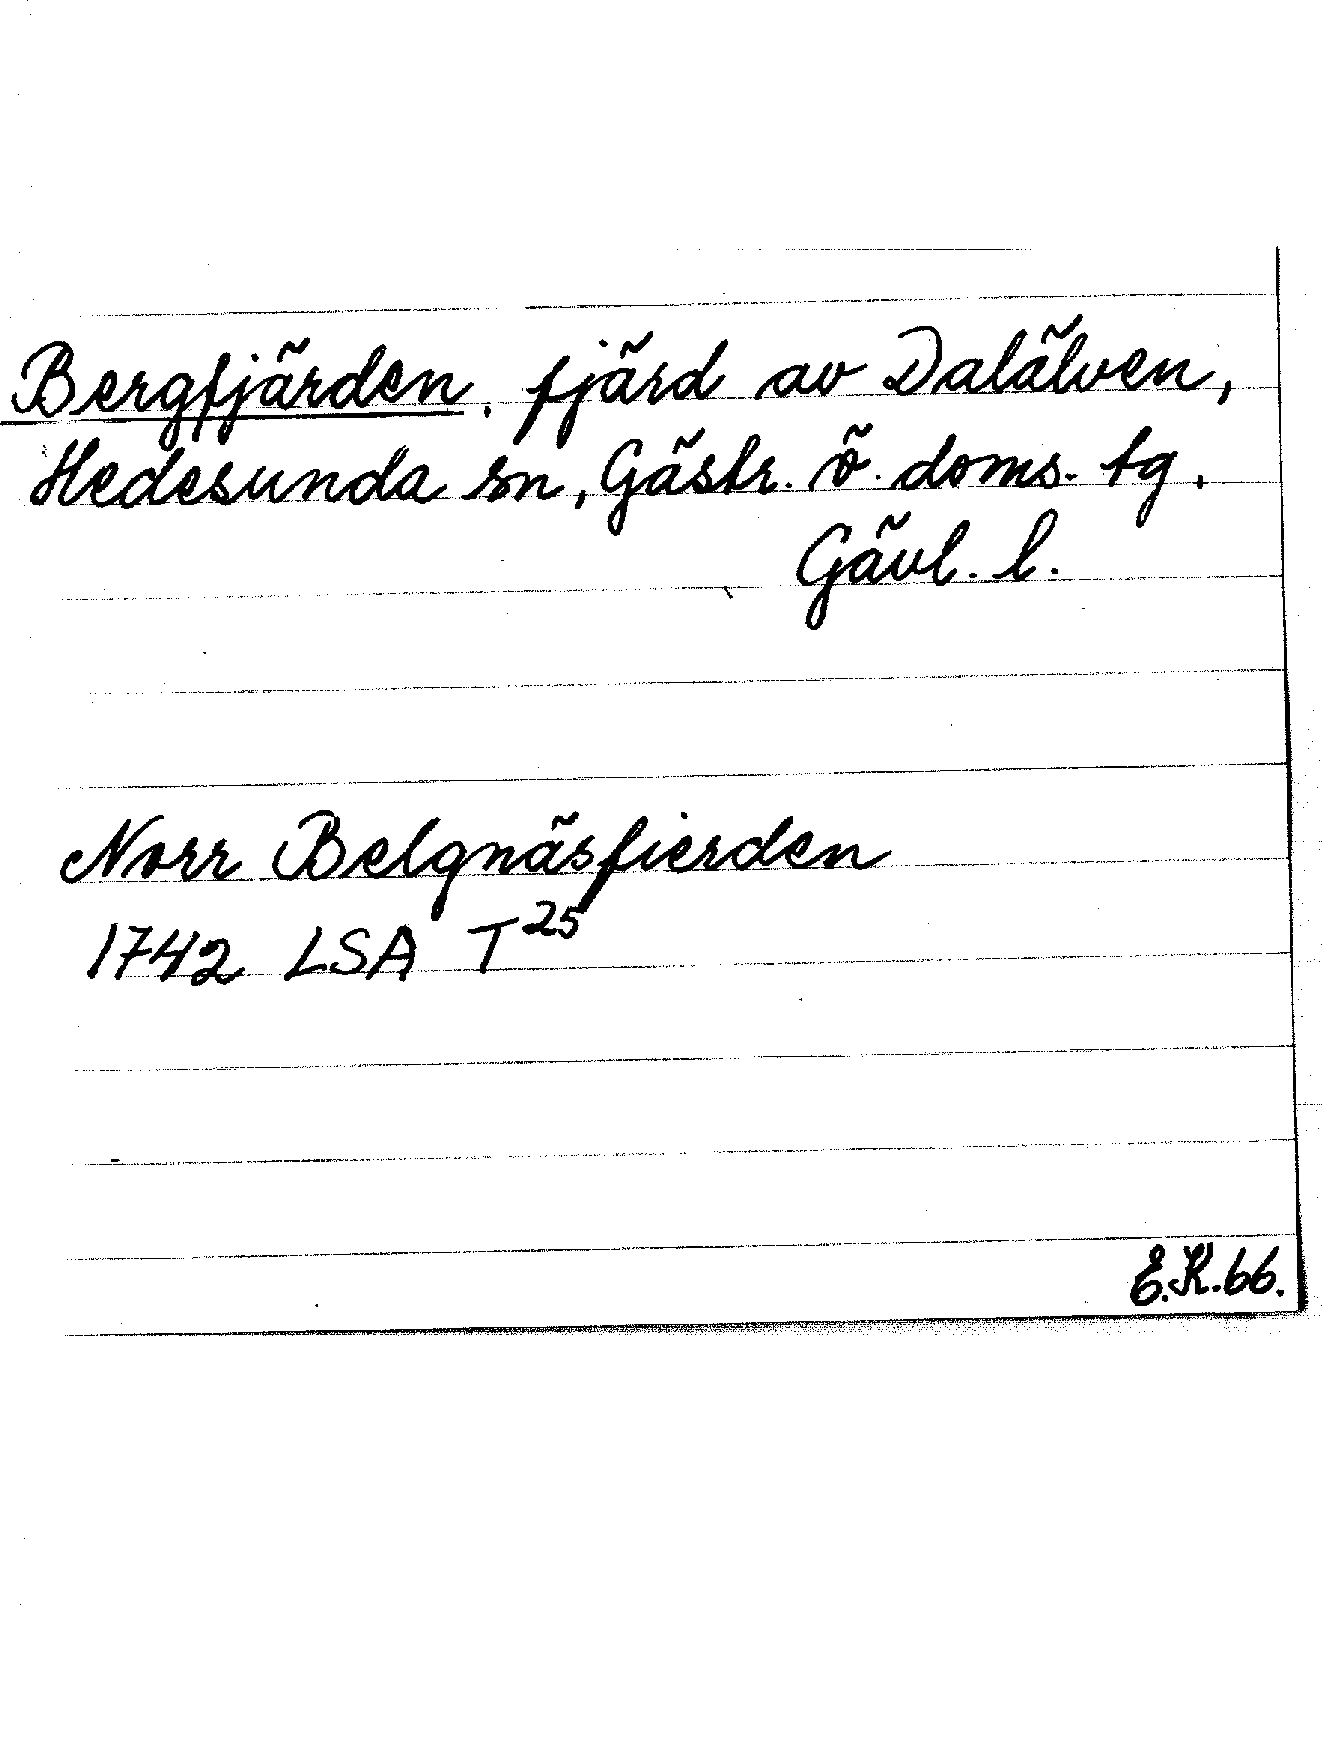 Bergfjärden, fjärd av Dalälven,
Hedesunda sn, Gästr. ö. doms. tg.
Gävl. l.
Norr Belgnäsfierden
1742 LSA T²⁵
E.K.66.